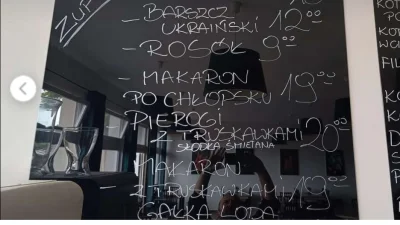 ZUP
- BARSZCZ
UKRAIŃSKI 12⁰⁰
- ROSÓŁ 9⁰⁰
- MAKARON 19⁰⁰
PO CHŁOPSKU
- PIEROGI
Z TRUSKAWKAMI 20⁰⁰
SŁODKA ŚMIETANA
- MAKARON
Z TRUSKAWKAMI 19⁰⁰
GAŁKA LODA